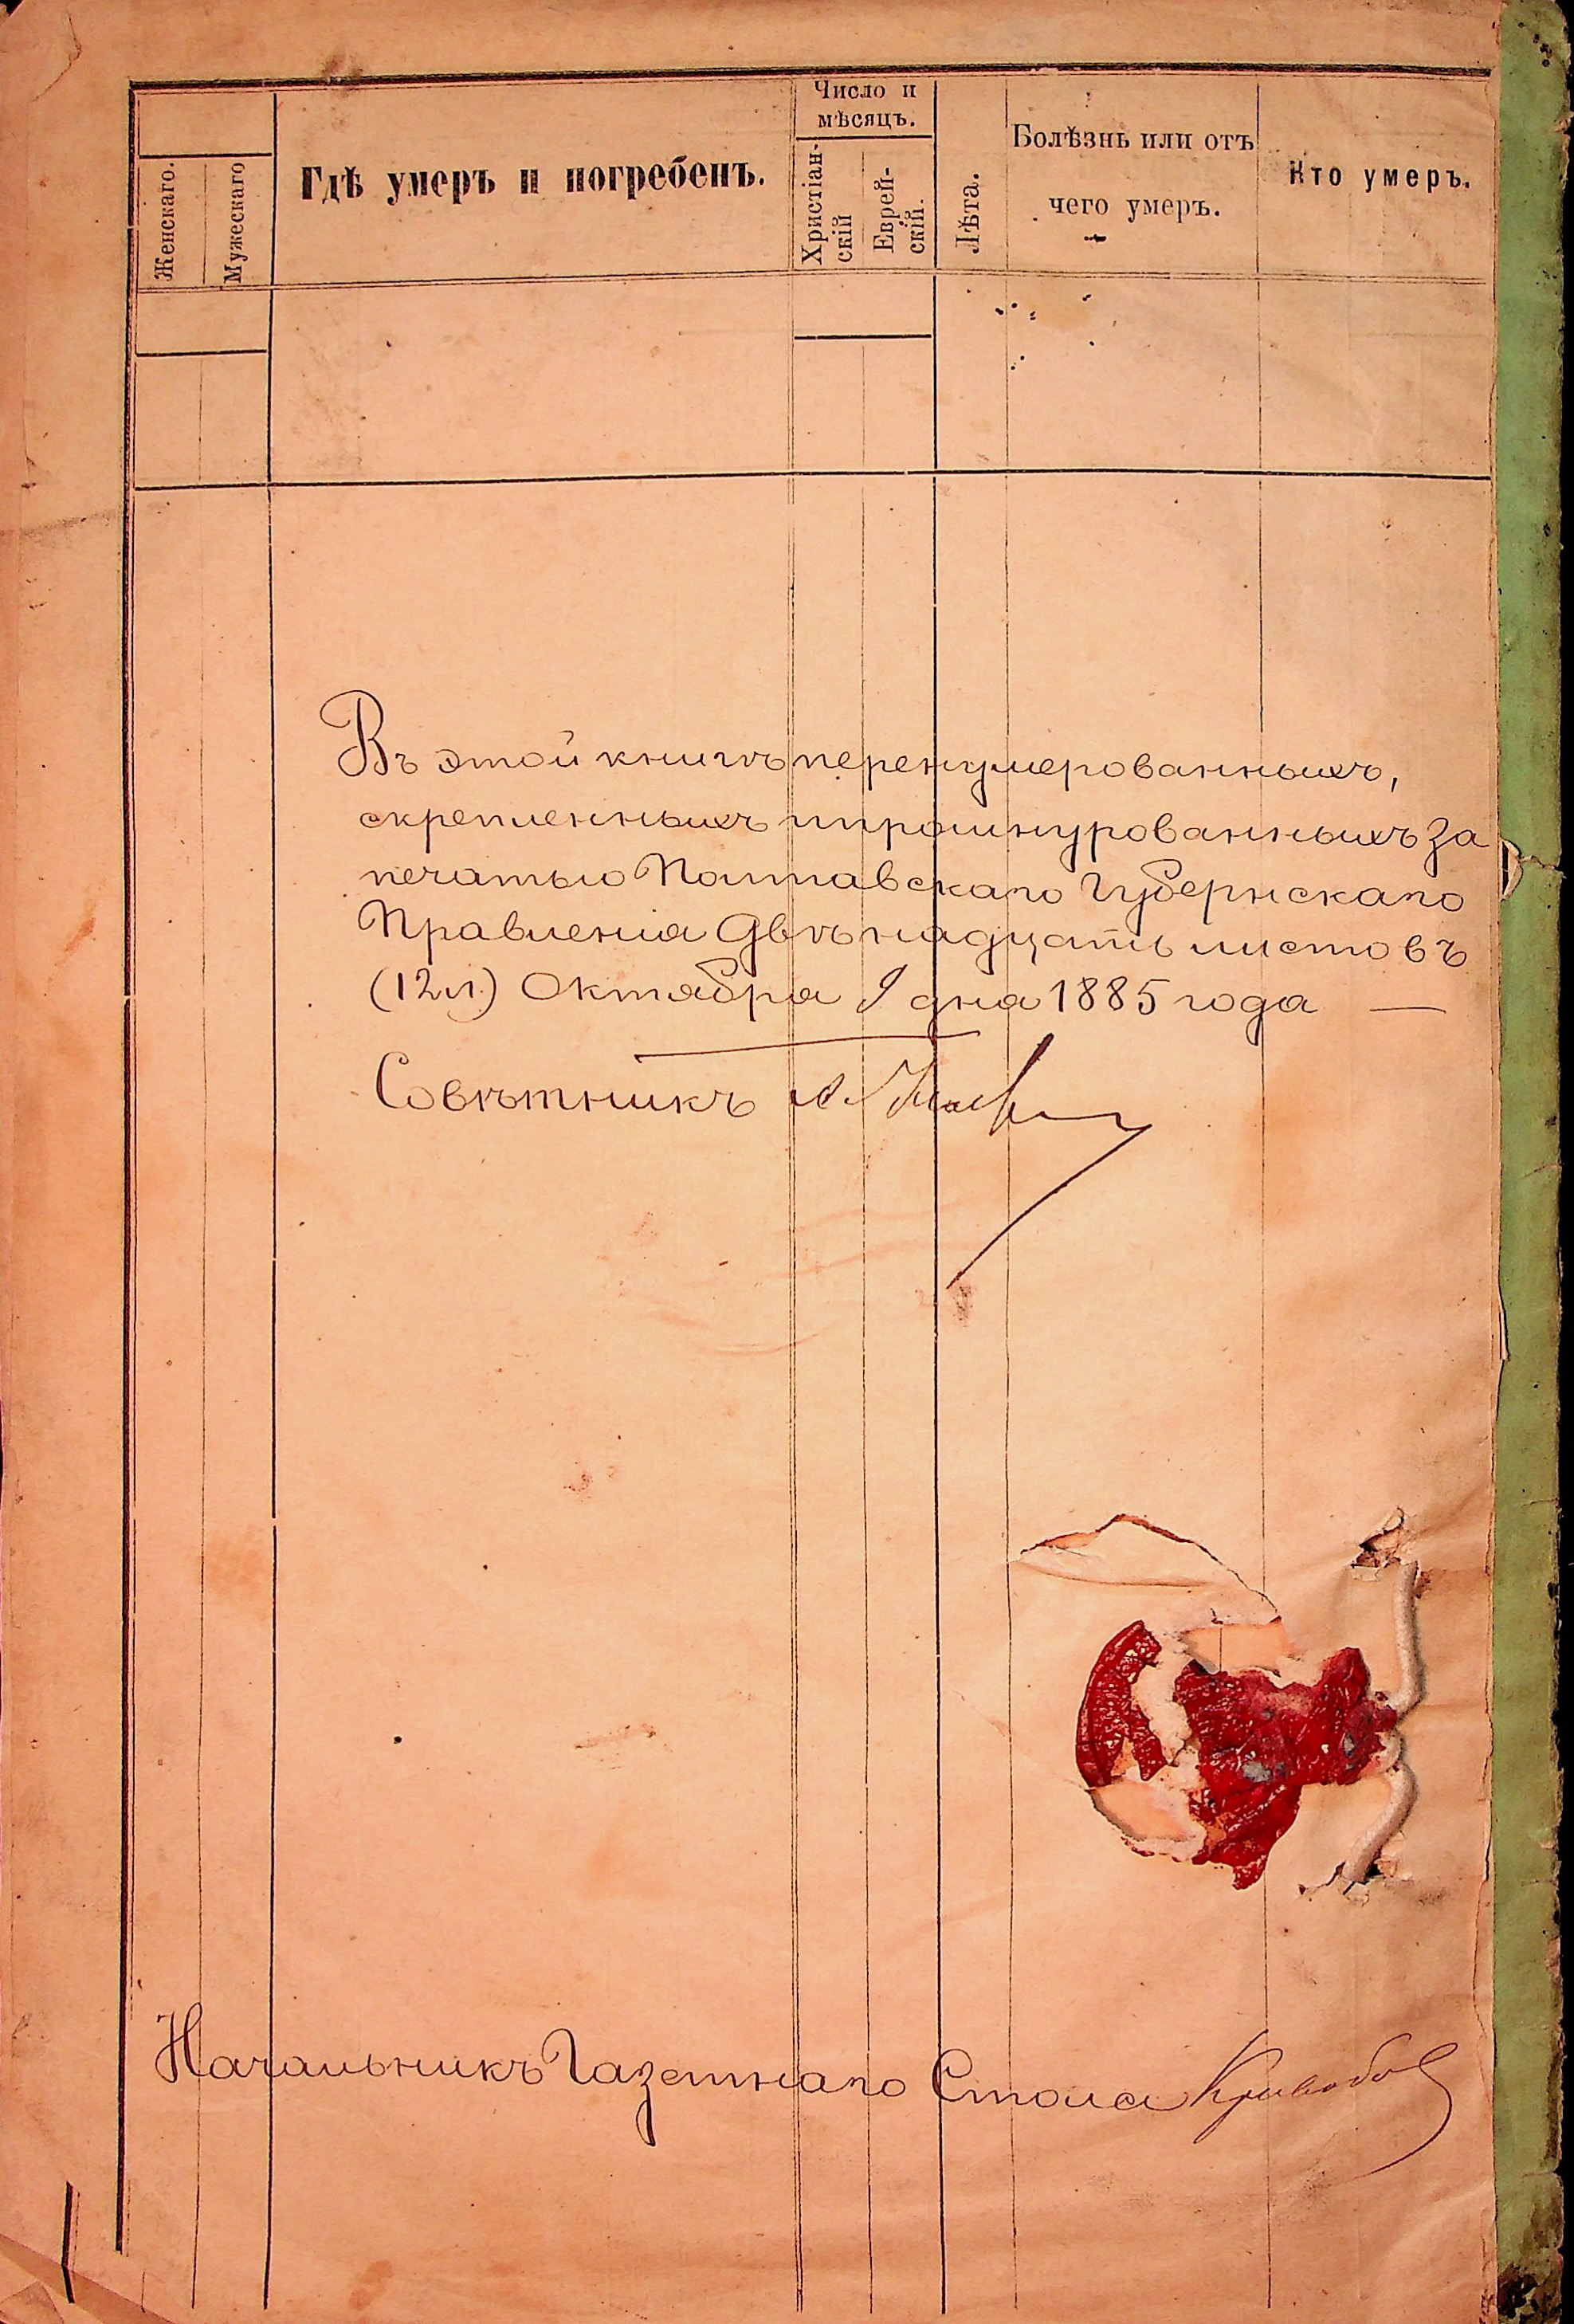 Женскаго.
Мужескаго
Гдѣ умеръ и погребенъ.
Число и
мѣсяцъ.
Христіан-
скій
Еврей-
скій.
Лѣта.
Болѣзнь или отъ
чего умеръ.
Кто умеръ.
Въ этой книгѣ перенумерованныхъ,
скрепленныхъ и прошнурованныхъ за
печатью Полтавскаго Губернскаго
Правленія Двѣнадцать листовъ
(12 л.) Октября 9 дня 1885 года —
Совѣтникъ
Начальникъ Газетнаго Стола